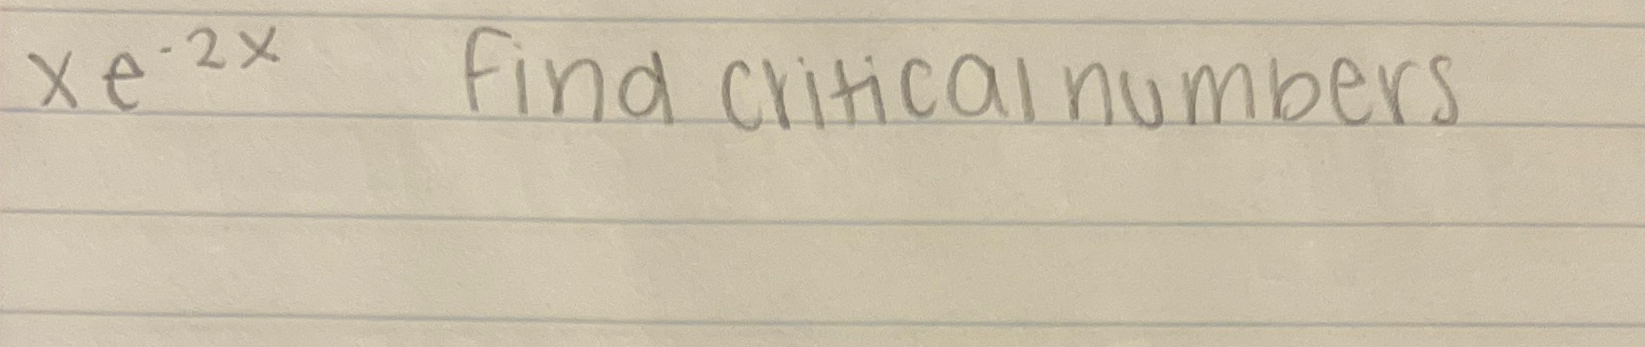 xe⁻²ˣ find critical numbers